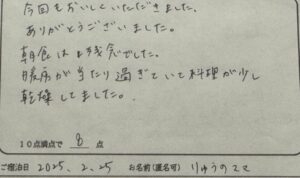 今回もおいしくいただきました。
ありがとうございました。
朝食は残念でした。
暖房が当たり過ぎていて料理が少し
乾燥してました。
10点満点で 8 点
ご宿泊日 2025. 2. 25 お名前(匿名可) りゅうのママ